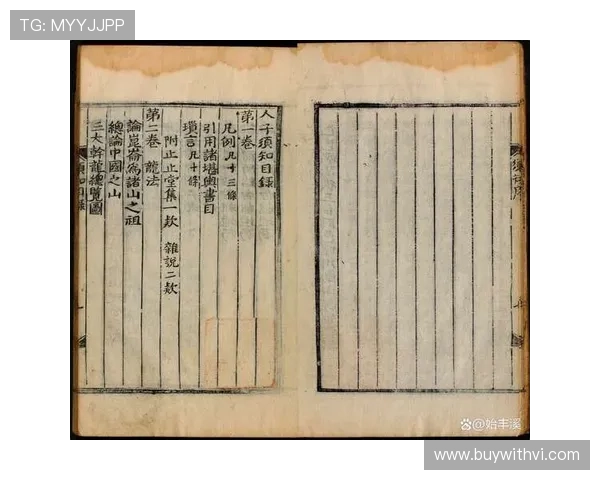 TG: MYYJJPP
人子須知目錄
第一卷
凡例凡十三條
引用諸堪輿書目
瑣言凡十條
附止止堂集一款 雜說二款
第二卷 龍法
論崑崙為諸山之祖
總論中國之山
三大幹龍總覽圖
須知目錄
一
@始丰溪
www.buywithvi.com